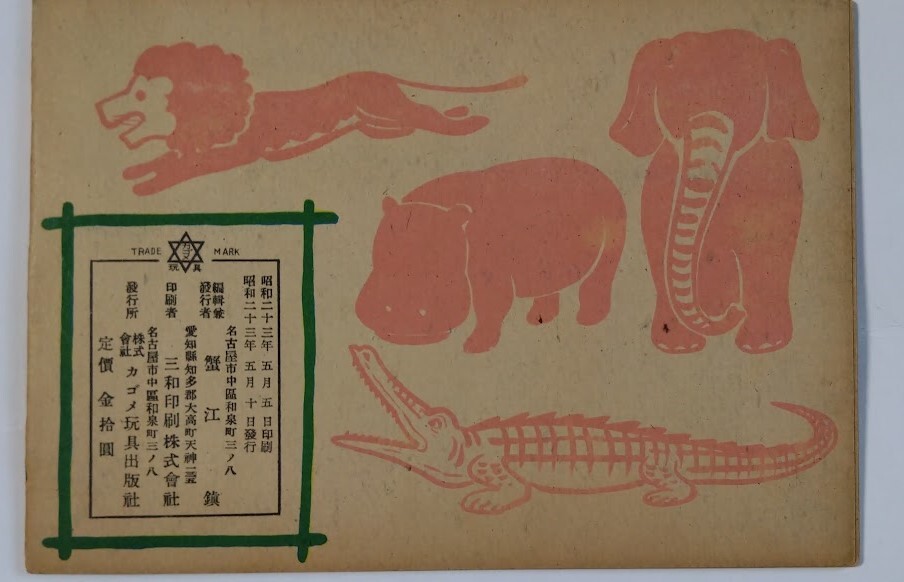 TRADE MARK
カゴメ
玩具
昭和二十三年 五月 五 日印刷
昭和二十三年 五月 十 日發行
名古屋市中區和泉町三ノ八
編輯兼
發行者 蟹江 鎮
愛知縣知多郡大高町天神
印刷者 三和印刷株式會社
名古屋市中區和泉町三ノ八
發行所 株式會社 カゴメ玩具出版社
定價 金拾圓